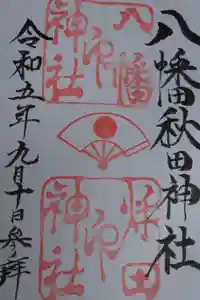 八幡秋田神社
八幡神社印
秋田神社印
令和五年九月十日参拝